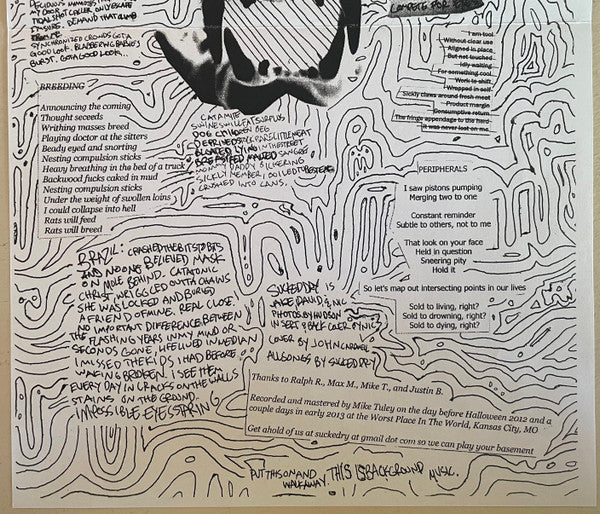 COMPETE FOR
I am tool
Without clear use
Aligned in place
But not touched
Idly waiting
For something cool
Work to shift
Wrapped in self
Sickly claws around fresh meat
Product margin
Consumptive return
The fringe appendage to
It was never lost on me
DEMAND THAT
SYNCHRONIZED CROWDS GOT A
GOOD LOOK. BLABBERING BABIES
BURST. GOT A GOOD LOOK..
BREEDING
Announcing the coming
Thought seceeds
Writhing masses breed
Playing doctor at the sitters
Beady eyed and snorting
Nesting compulsion sticks
Heavy breathing in the bed of a truck
Backwood fucks caked in mud
Nesting compulsion sticks
Under the weight of swollen loins
I could collapse into hell
Rats will feed
Rats will breed
CATAMITE
SWINE SWILL EAT SURPLUS
DOG CHILDREN BEG
BLOATED LYING IN THE STREET
DADDY
SICKLY MEMBER,
CRUSHED INTO CANS.
PERIPHERALS
I saw pistons pumping
Merging two to one
Constant reminder
Subtle to others, not to me
That look on your face
Held in question
Sneering pity
Hold it
So let's map out intersecting points in our lives
Sold to living, right?
Sold to drowning, right?
Sold to dying, right?
BRAZIL: CRASHED THE BITS TO BITS
AND NO ONE BELIEVED MASK
ON MOLE BEHIND. CATATONIC
CHRIST WRIGGED OUTTA CHAINS
SHE WAS LOCKED AND BURIED
A FRIEND OF MINE. REAL CLOSE.
NO IMPORTANT DIFFERENCE BETWEEN
THE FLASHING YEARS IN MY MIND OR
SECONDS GONE. WE LIVED IN MEDIAN
I MISSED THE KIDS I HAD BEFORE
WAKING BROKEN. I SEE THEM
EVERY DAY IN CRACKS ON THE WALLS
STAINS ON THE GROUND.
IMPOSSIBLE EYES STARING
SUCKED DRY IS
JAKE DAVID & NIC
PHOTOS BY HUDSON
INSERT & BACK COVER BY NIC
COVER BY JOHN
ALL SONGS BY SUCKED DRY
Thanks to Ralph R., Max M., Mike T., and Justin B.
Recorded and mastered by Mike Tuley on the day before Halloween 2012 and a
couple days in early 2013 at the Worst Place In The World, Kansas City, MO
Get ahold of us at suckedry at gmail dot com so we can play your basement
PUT THIS ON AND THIS IS BACKGROUND MUSIC.
WALK AWAY.